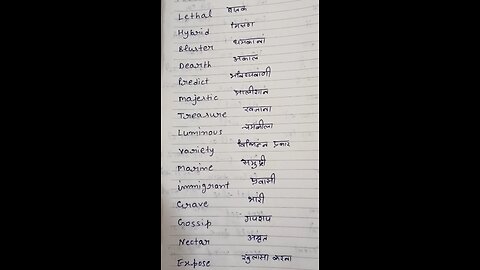 Lethal घातक
Hybrid मिश्रित
Bluster धमकाना
Dearth अकाल
Predict भविष्यवाणी
Majestic आलीशान
Treasure खजाना
Luminous चमकीला
Variety विभिन्न प्रकार
Marine समुद्री
immigrant प्रवासी
Grave भारी
Gossip गपशप
Nectar अमृत
Expose खुलासा करना